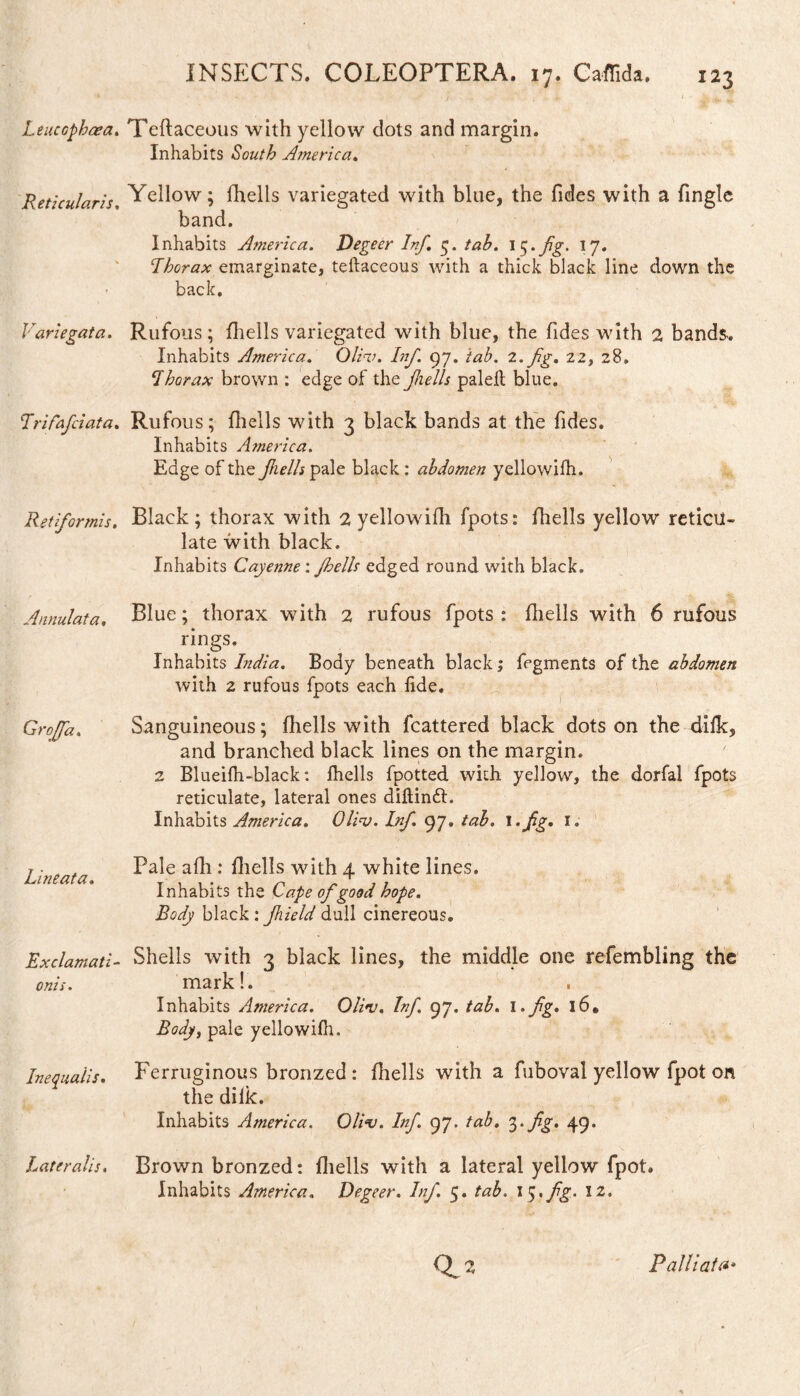 INSECTS. COLEOPTERA. 17. Caſſida. 123
Leucophœa. Teſtaceous with yellow dots and margin.
Inhabits South America.
Reticularis. Yellow; ſhells variegated with blue, the ſides with a ſingle
band.
Inhabits America. Degeer Inſ. 5. tab. 15. fig. 17.
Thorax emarginate, teſtaceous with a thick black line down the
back.
Variegata. Rufous; ſhells variegated with blue, the ſides with 2 bands.
Inhabits America. Oliv. Inſ. 97. tab. 2. fig. 22, 28.
Thorax brown : edge of the ſhells paleſt blue.
Trifaſciata. Rufous; ſhells with 3 black bands at the ſides.
Inhabits America.
Edge of the ſhells pale black: abdomen yellowiſh.
Retiformis. Black; thorax with 2 yellowiſh ſpots: ſhells yellow reticu-
late with black.
Inhabits Cayenne: ſhells edged round with black.
Annulata. Blue; thorax with 2 rufous ſpots: ſhells with 6 rufous
rings.
Inhabits India. Body beneath black; ſegments of the abdomen
with 2 rufous ſpots each ſide.
Groſſa. Sanguineous; ſhells with ſcattered black dots on the diſk,
and branched black lines on the margin.
2 Blueiſh-black: ſhells ſpotted with yellow, the dorſal ſpots
reticulate, lateral ones diſtinct.
Inhabits America. Oliv. Inſ. 97. tab. 1. fig. 1.
Lineata. Pale aſh: ſhells with 4 white lines.
Inhabits the Cape of good hope.
Body black: ſhield dull cinereous.
Exclamati- Shells with 3 black lines, the middle one reſembling the
onis. mark!.
Inhabits America. Oliv. Inſ. 97. tab. 1. fig. 16.
Body, pale yellowiſh.
Inequalis. Ferruginous bronzed: ſhells with a ſuboval yellow ſpot on
the diſk.
Inhabits America. Oliv. Inſ. 97. tab. 3. fig. 49.
Lateralis. Brown bronzed: ſhells with a lateral yellow ſpot.
Inhabits America. Degeer. Inſ. 5. tab. 15. fig. 12.
Q 2 Palliata.